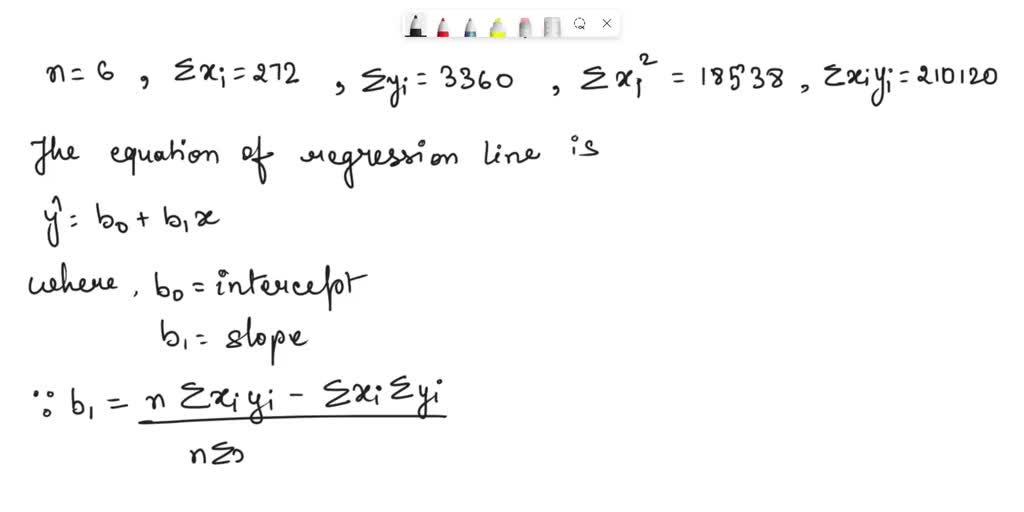 n = 6 , Σxᵢ = 272 , Σyᵢ = 3360 , Σxᵢ² = 18538 , Σxᵢyᵢ = 210120
The equation of regression line is
ŷ = b₀ + b₁x
where, b₀ = intercept
b₁ = slope
∵ b₁ = n Σxᵢyᵢ - Σxᵢ Σyᵢ
nΣ